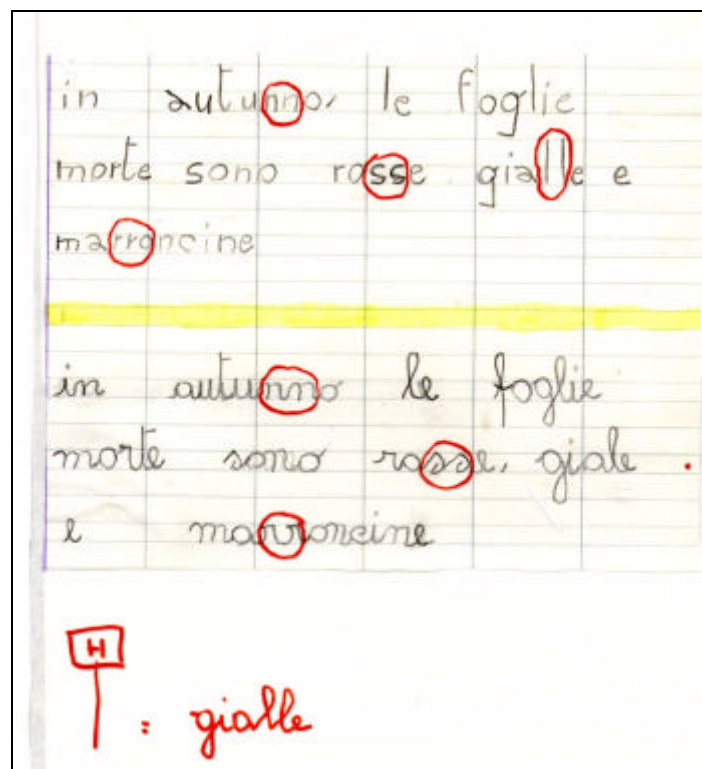 in autunno, le foglie
morte sono rosse gialle e
marroncine
in autunno le foglie
morte sono rosse, giale .
e marroncine
H
: gialle